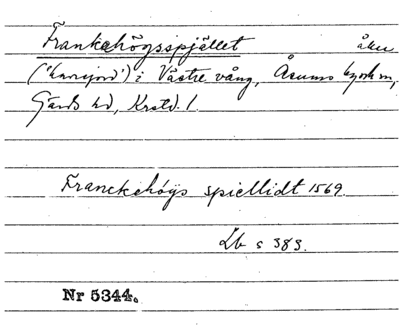 Frankehögsspjället åker
("humejord") i Västre vång, Åsums by o sn,
Gärds hd, Krstd. l.
Franckehögs spiellidt 1569.
Lb s 383.
Nr 5344.